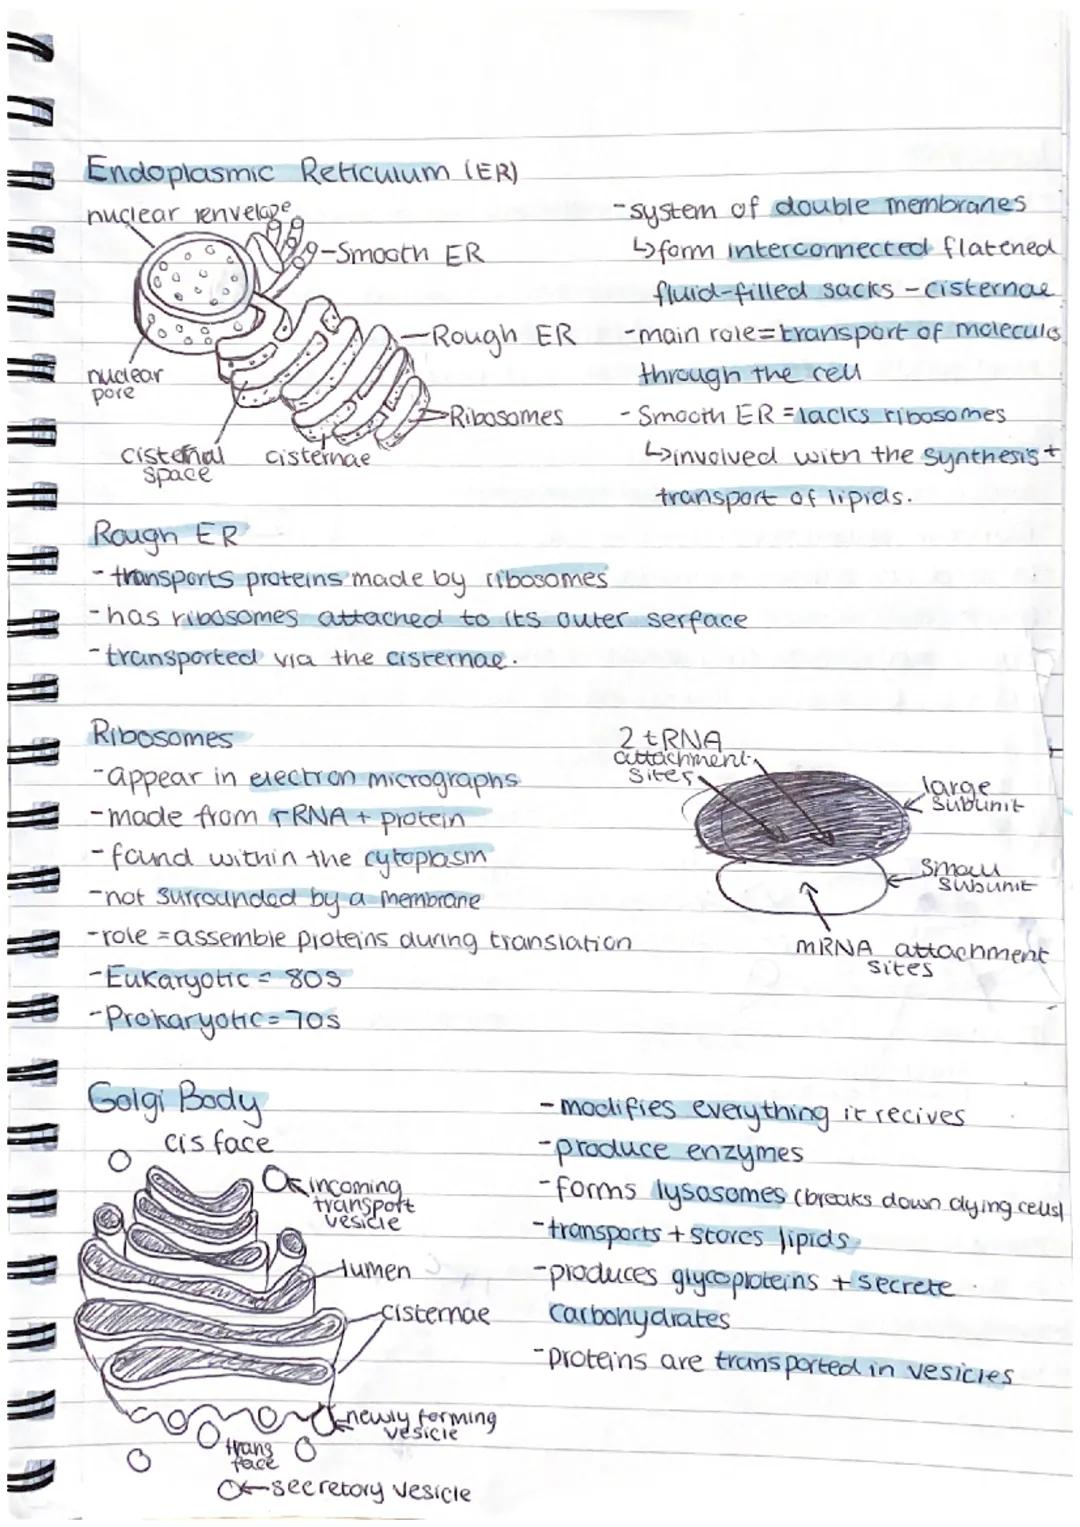 Endoplasmic Reticulum (ER)
nuclear envelope
Smooth ER
Rough ER
nuclear
pore
Ribosomes
cisternal
space
cisternae
-system of double membranes
↳form interconnected flattened
fluid-filled sacks - cisternae
-main role=transport of moleculs
through the cell
-Smooth ER=lacks ribosomes
↳involved with the synthesis+
transport of lipids.
Rough ER
-transports proteins made by ribosomes
-has ribosomes attached to its outer serface
-transported via the cisternae.
Ribosomes
-appear in electron micrographs
-made from rRNA + protein
-found within the cytoplasm
-not surrounded by a membrane
-role =assemble proteins during translation
-Eukaryotic = 80s
-Prokaryotic=70s
2 tRNA
attachment
sites
large
subunit
small
subunit
mRNA attachment
sites
Golgi Body
cis face
incoming
transport
vesicle
lumen
cisternae
newly forming
vesicle
trans
face
secretory vesicle
-modifies everything it recives
-produce enzymes
-forms lysosomes (breaks down dying cells)
-transports + stores lipids
-produces glycoproteins + secrete
carbohydrates
-proteins are transported in vesicles